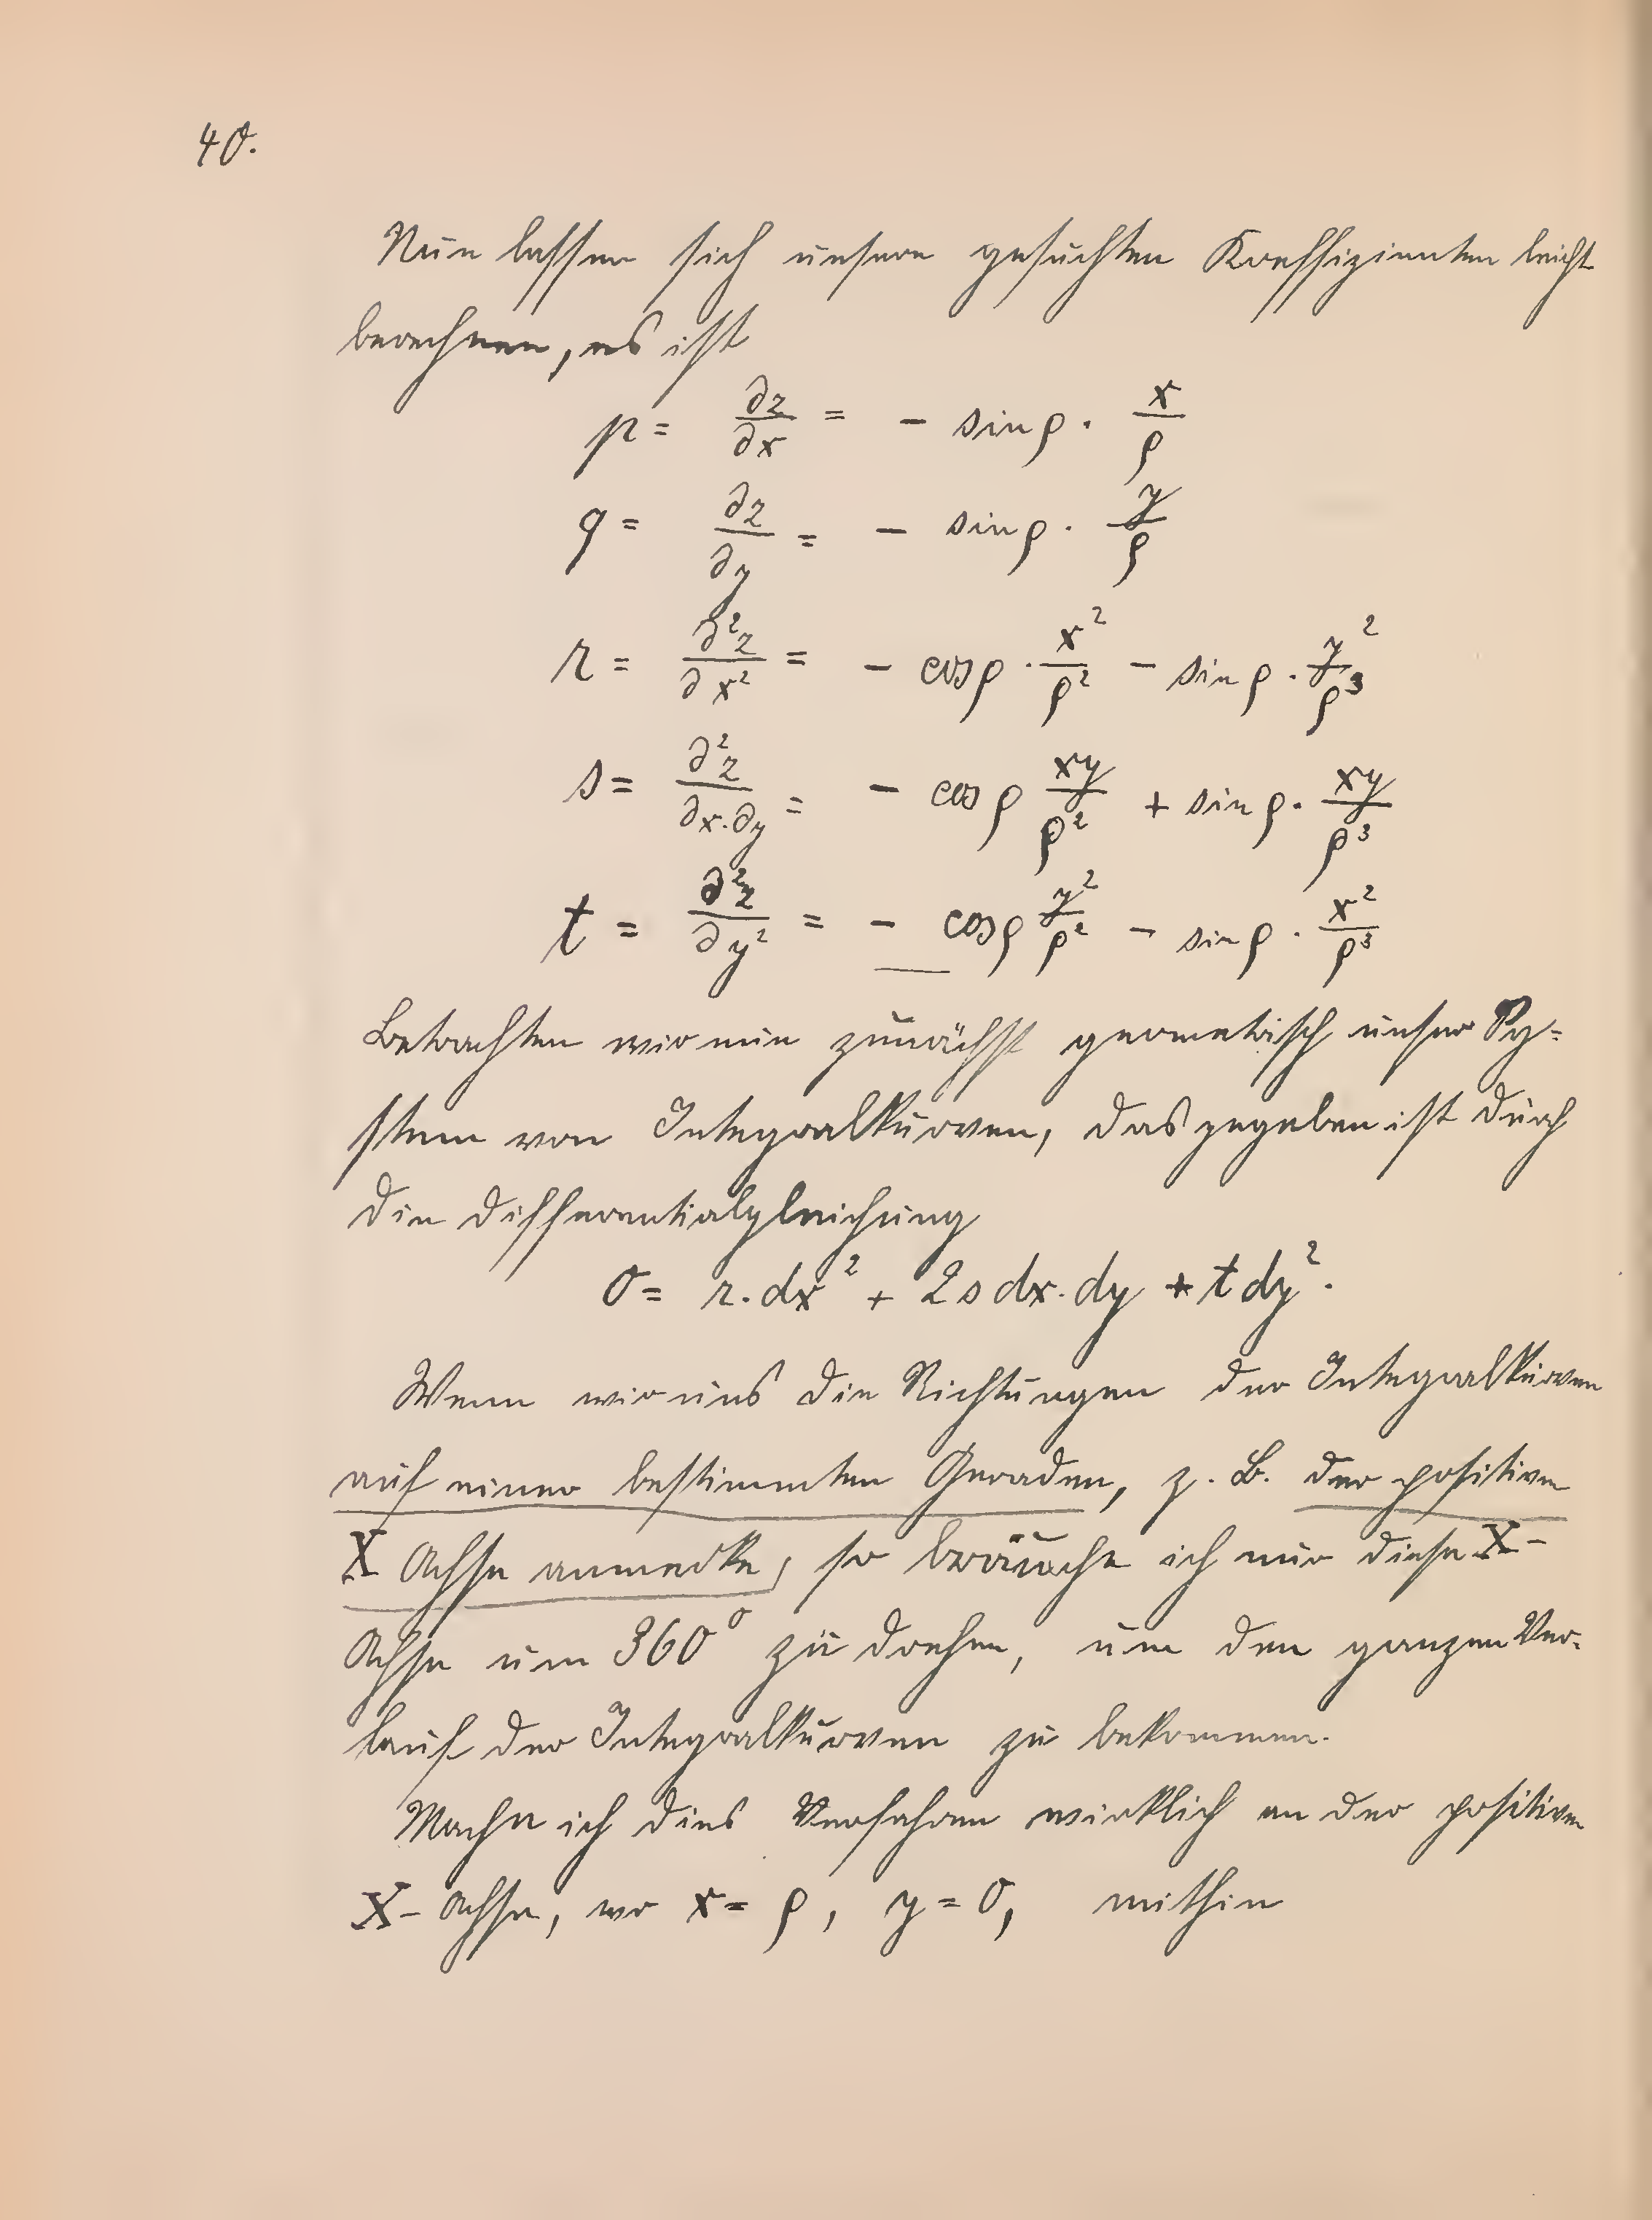 40.
Nun lassen sich unsere gesuchten Koeffizienten leicht
berechnen, es ist
p = ∂z/∂x = - sin ρ · x/ρ
q = ∂z/∂y = - sin ρ · y/ρ
r = ∂²z/∂x² = - cos ρ · x²/ρ² - sin ρ · y²/ρ³
s = ∂²z/∂x·∂y = - cos ρ xy/ρ² + sin ρ · xy/ρ³
t = ∂²z/∂y² = - cos ρ y²/ρ² - sin ρ · x²/ρ³
Betrachten wir nun zunächst geometrisch unser Sy-
stem von Integralkurven, das gegeben ist durch
die Differentialgleichung
0 = r·dx² + 2s dx·dy + t dy².
Wenn wir uns die Richtungen der Integralkurven
auf einer bestimmten Geraden, z. B. der positiven
X Achse anmerke, so brauche ich nur diese X-
Achse um 360° zu drehen, um den ganzen Ver-
lauf der Integralkurven zu bekommen.
Mache ich dies Verfahren wirklich an der positiven
X-Achse, wo x = ρ, y = 0, mithin